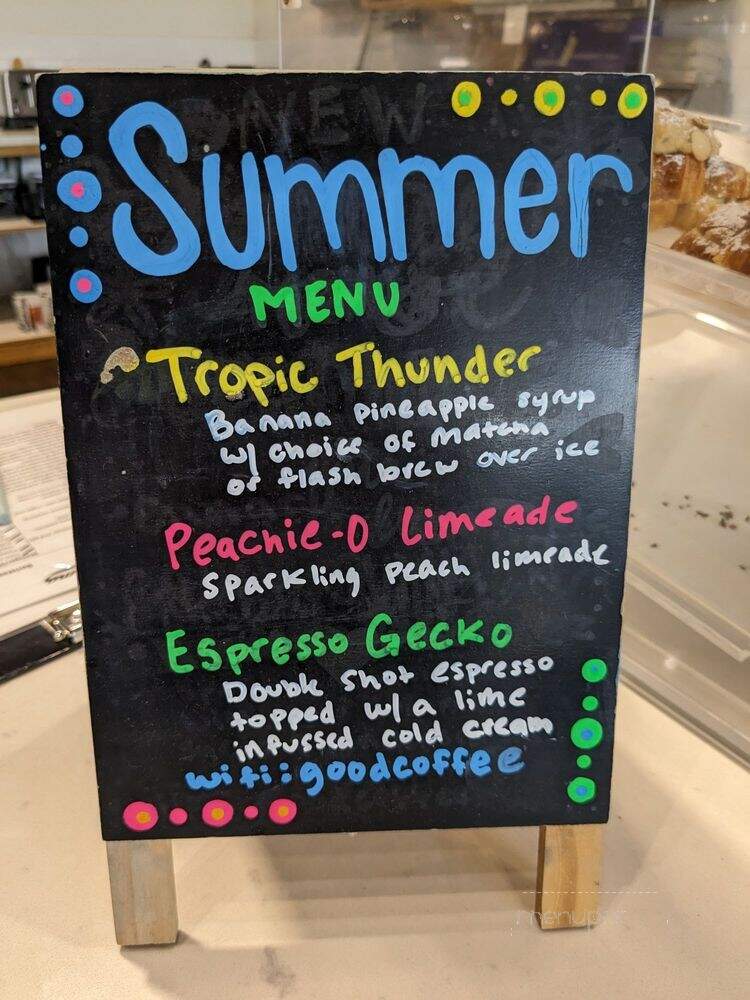 NEW
Summer
MENU
Tropic Thunder
Banana pineapple syrup
w/ choice of matcha
or flash brew over ice
Peachie-O Limeade
sparkling peach limeade
Espresso Gecko
Double shot espresso
topped w/ a lime
infussed cold cream
wifi: goodcoffee